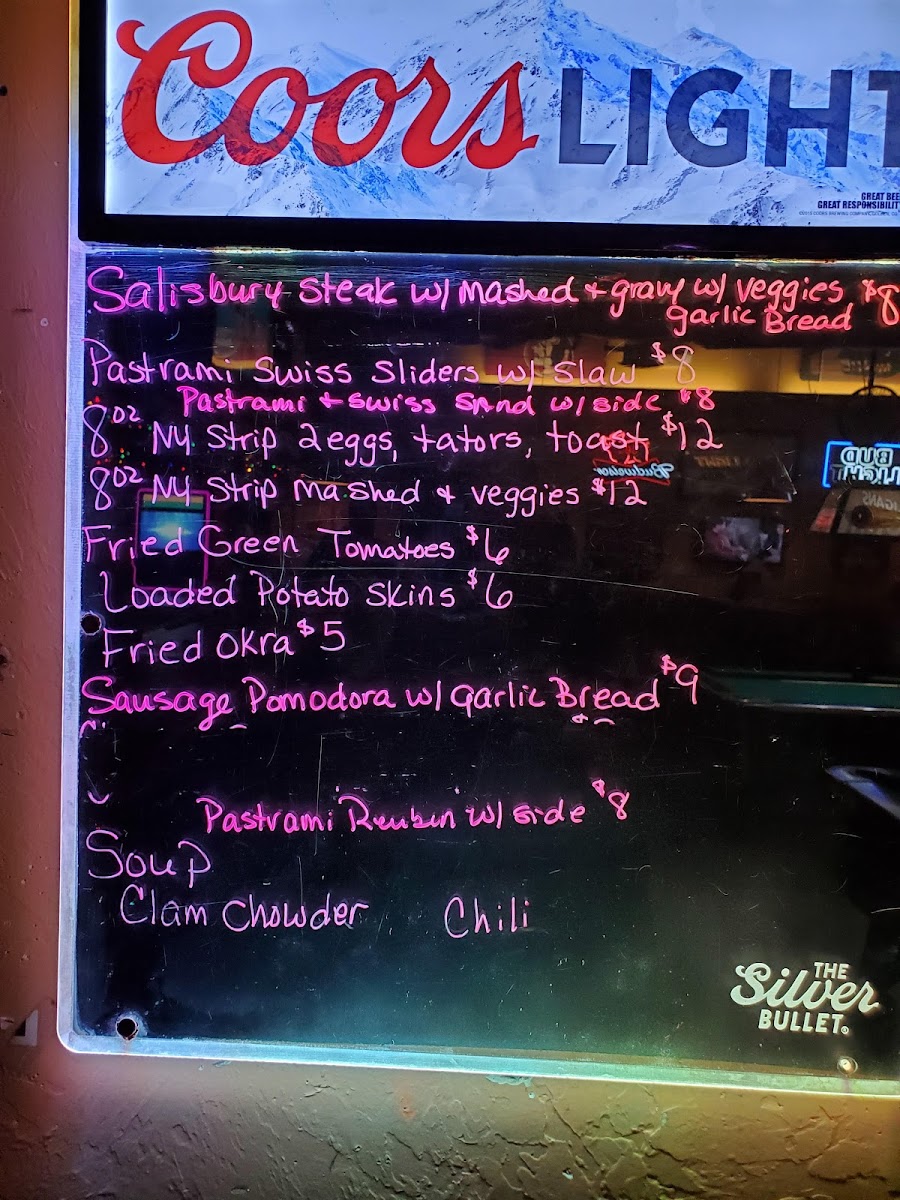 Coors LIGHT
GREAT BEE
GREAT RESPONSIBILITY
Salisbury Steak w/ Mashed + gravy w/ veggies $8
garlic Bread
Pastrami Swiss Sliders w/ Slaw $8
Pastrami + Swiss Sand w/ side $8
8oz NY Strip 2eggs, tators, toast $12
8oz NY Strip mashed & veggies $12
Fried Green Tomatoes $6
Loaded Potato Skins $6
Fried Okra $5
Sausage Pomodora w/ garlic Bread $9
Pastrami "Reuben" w/ side $8
Soup
Clam Chowder Chili
THE
Silver
BULLET.
Budweiser
BUD
LIGHT